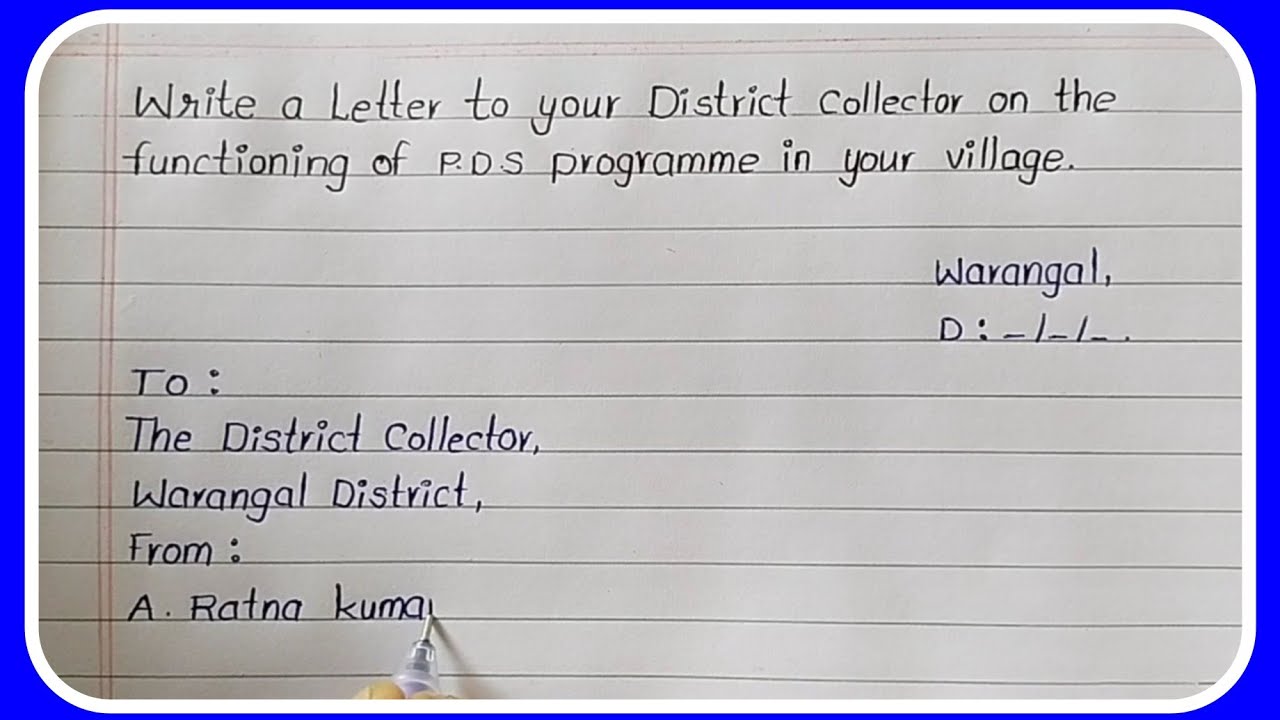 Write a Letter to your District Collector on the
functioning of P.D.S programme in your village.
Warangal,
D : _/_/_ .
To :
The District Collector,
Warangal District,
From :
A. Ratna kuma